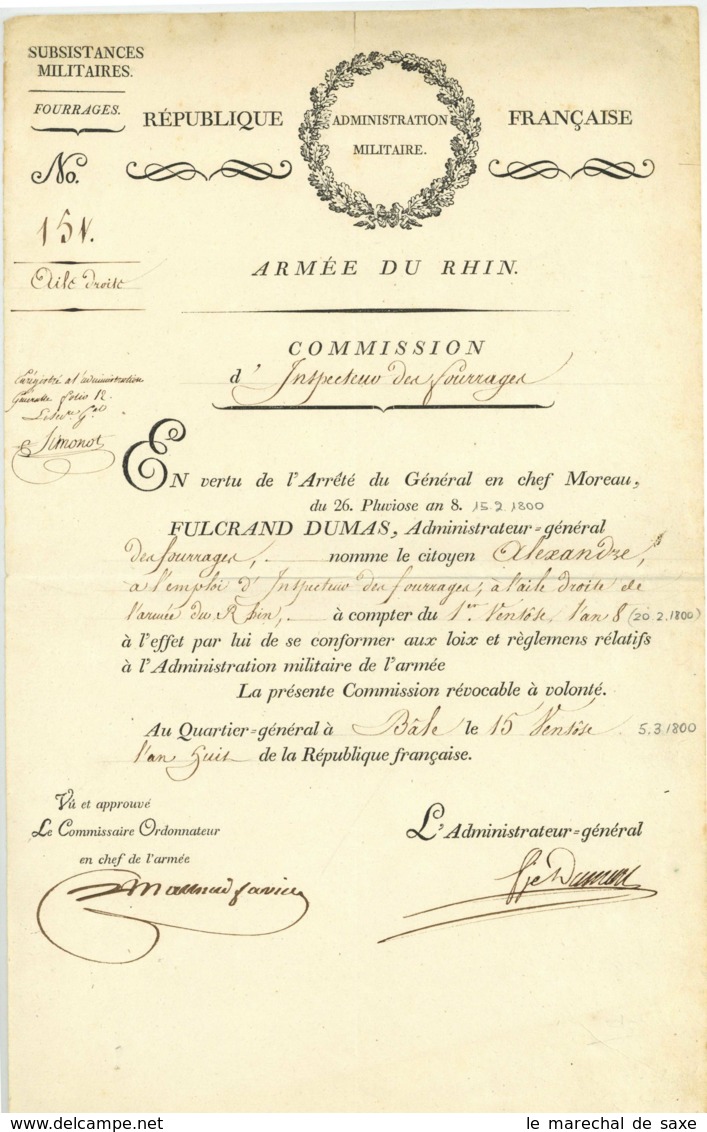 SUBSISTANCES
MILITAIRES.
FOURRAGES.
RÉPUBLIQUE
ADMINISTRATION
MILITAIRE.
FRANÇAISE
No.
151.
Aile droite
ARMÉE DU RHIN.
COMMISSION
d' Inspecteur des fourrages
Enregistré a l'administration
Generalle folio 12
Simonot
EN vertu de l'Arrêté du Général en chef Moreau,
du 26. Pluviose an 8. 15.2.1800
FULCRAND DUMAS, Administrateur=général
des fourrages, nomme le citoyen Alexandre,
a l'emploi d'Inspecteur des fourrages, à l'aile droite de
l'armée du Rhin, à compter du 1er. Ventôse l'an 8 (20.2.1800)
à l'effet par lui de se conformer aux loix et règlemens rélatifs
à l'Administration militaire de l'armée
La présente Commission révocable à volonté.
Au Quartier=général à Bâle le 15 Ventôse 5.3.1800
l'an huit de la République française.
Vû et approuvé
Le Commissaire Ordonnateur
en chef de l'armée
L'Administrateur=général
www.delcampe.net
le marechal de saxe